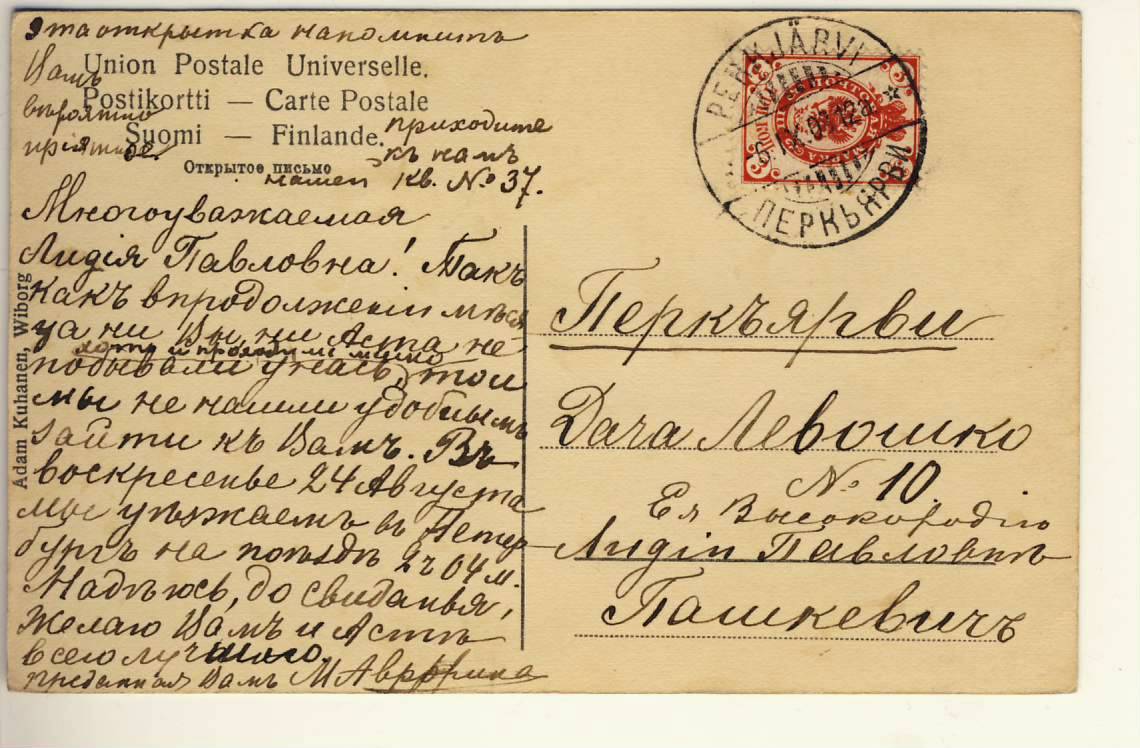 Эта открытка напомнитъ
Вамъ
вѣроятно
пріятное.
Union Postale Universelle.
Postikortti — Carte Postale
Suomi — Finlande.
Открытое письмо
приходите
къ намъ
кв. № 37.
Многоуважаемая
Лидія Павловна! Такъ
какъ впродолженіи мѣся
ца ни Вы, ни Аста не
хотя и проходили мимо
побывали у насъ, то и
мы не нашли удобнымъ
зайти къ Вамъ. Въ
воскресенье 24 Августа
мы уѣзжаемъ въ Петер
бургъ на поѣздѣ 2 ч 04 м.
Надѣюсь, до свиданья,
Желаю Вамъ и Астѣ
всего лучшаго.
преданная Вамъ М
Adam Kuhanen, Wiborg
PERKJÄRVI
ПЕРКЪЯРВИ
Перкъярви
Дача Левошко
№ 10
Ея Высокородію
Лидіи Павловнѣ
Пашкевичъ